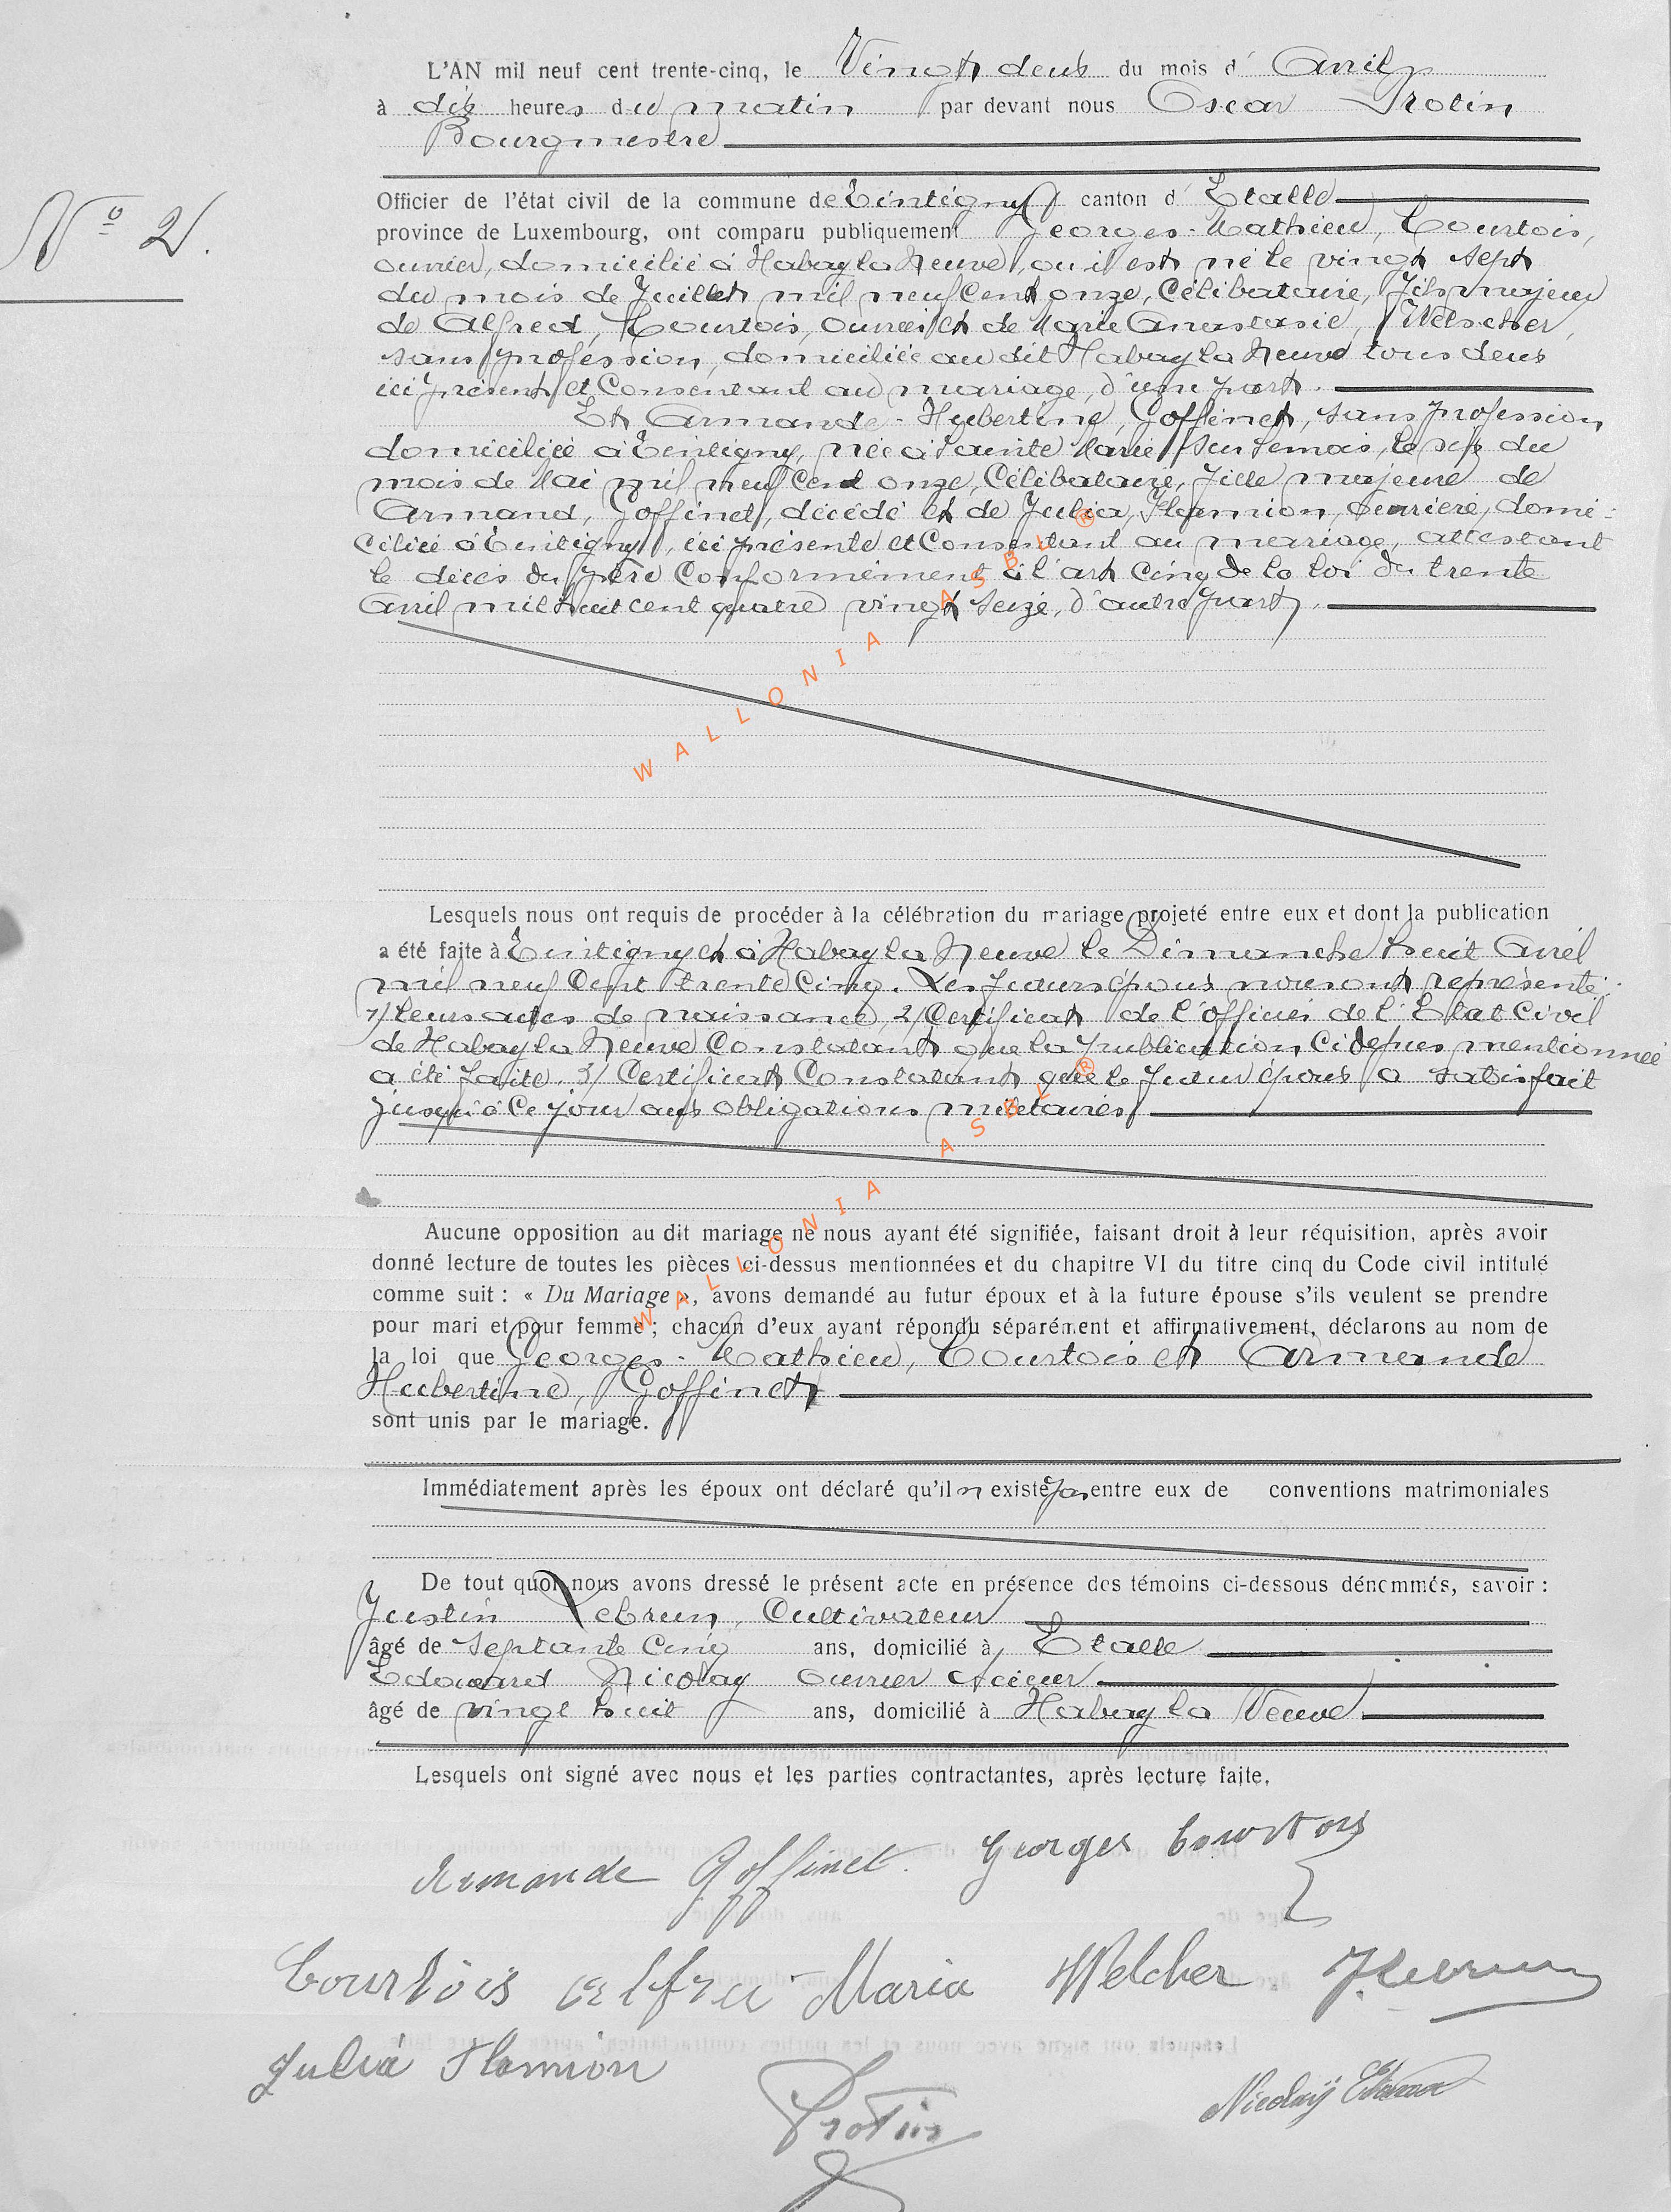 L'AN mil neuf cent trente-cinq, le Vingt deux du mois d' Avril
à dix heures du matin par devant nous Oscar Protin
Bourgmestre
N° 2.
Officier de l'état civil de la commune de Tintigny canton d' Etalle
province de Luxembourg, ont comparu publiquement Georges-Mathieu, Courtois,
ouvrier, domicilié à Habay la Neuve, ou il est né le vingt sept
du mois de Juillet mil neuf cent onze, Célibataire, fils majeur
de Alfred, Courtois, ouvrier et de Marie Anastasie, Welscher,
sans profession, domiciliée au dit Habay la Neuve tous deux
ici présent et Consentant au mariage, d'une part.
Et Armande-Hubertine, Goffinet, sans profession
domiciliée à Tintigny, née à Sainte Marie sur Semois, le six du
mois de Mai mil neuf Cent onze, Célibataire, fille majeure de
Armand, Goffinet, décédé et de Julia, Flamion, ouvrière, domi-
ciliée à Tintigny, ici présente et Consentant au mariage, attestant
le décès du père Conformément à l'art Cinq de la loi du trente
Avril mil huit cent quatre vingt seize, d'autre part.
WALLONIA ASBL ®
Lesquels nous ont requis de procéder à la célébration du mariage projeté entre eux et dont la publication
a été faite à Tintigny et à Habay la Neuve le Dimanche huit Avril
mil neuf Cent trente Cinq. Les futurs époux nous ont représenté:
1/ leurs actes de naissance, 2/ Certificat de l'officier de l'Etat Civil
de Habay la Neuve Constatant que la publication Ci depus mentionnée
a été faite. 3/ Certificat Constatant que le futur époux a satisfait
jusqu'à Ce jour aux obligations militaires
WALLONIA ASBL ®
Aucune opposition au dit mariage ne nous ayant été signifiée, faisant droit à leur réquisition, après avoir
donné lecture de toutes les pièces ci-dessus mentionnées et du chapitre VI du titre cinq du Code civil intitulé
comme suit : « Du Mariage », avons demandé au futur époux et à la future épouse s'ils veulent se prendre
pour mari et pour femme ; chacun d'eux ayant répondu séparément et affirmativement, déclarons au nom de
la loi que Georges-Mathieu, Courtois et Armande
Hubertine, Goffinet
sont unis par le mariage.
Immédiatement après les époux ont déclaré qu'il n existe pas entre eux de conventions matrimoniales
De tout quoi nous avons dressé le présent acte en présence des témoins ci-dessous dénommés, savoir :
Justin Lebrun, Cultivateur
âgé de septante Cinq ans, domicilié à Etalle
Edouard Nicolay ouvrier scieur
âgé de vingt huit ans, domicilié à Habay la Neuve
Lesquels ont signé avec nous et les parties contractantes, après lecture faite.
Armande Goffinet. Georges Courtois
Courtois Alfred Maria Welcher J. Lebrun
Julia Flamion
Protin
Nicolaÿ Edouard